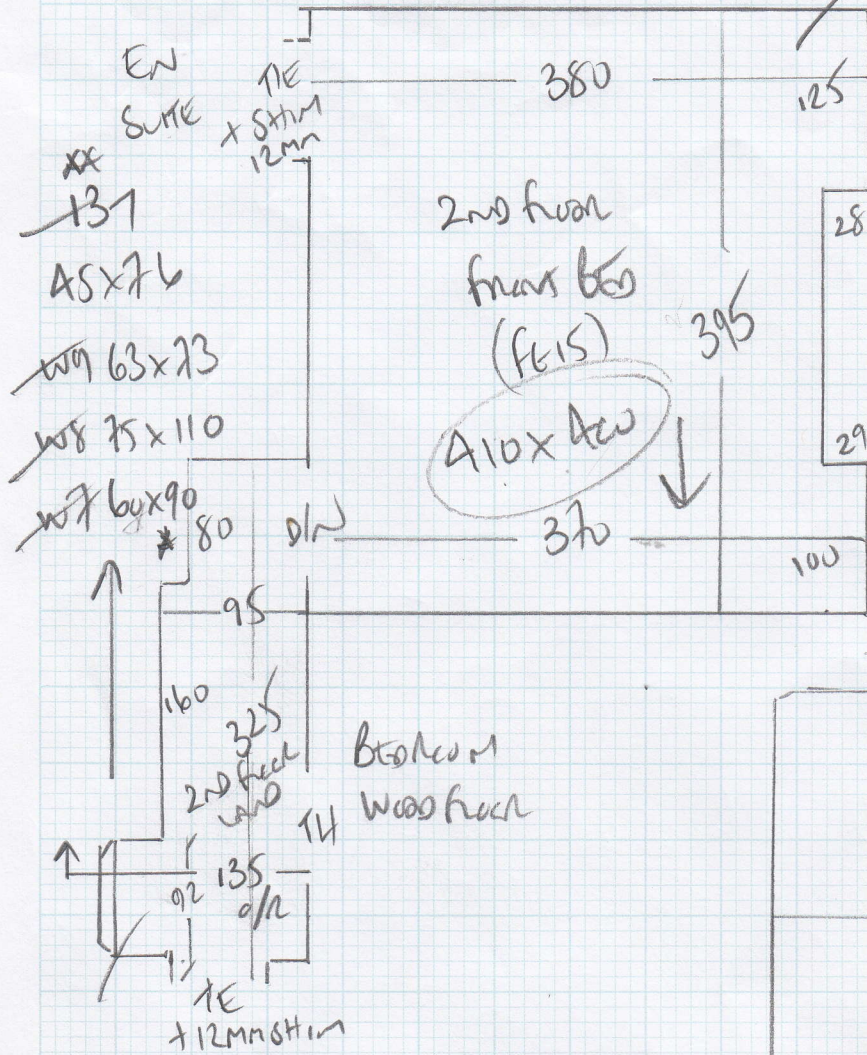 EN
SUITE
TIE
+ SHIM
12MM
380
125
**
131
45x76
W9 63x73
W8 75x110
W7 60x90
*
2ND FLOOR
FRONT BED
(FE15)
410x400
395
28
29
370
100
80
D/N
95
160
325
2ND FLOOR
LAND
BEDROOM
WOOD FLOOR
TH
135
92
O/R
TE
+12MM SHIM